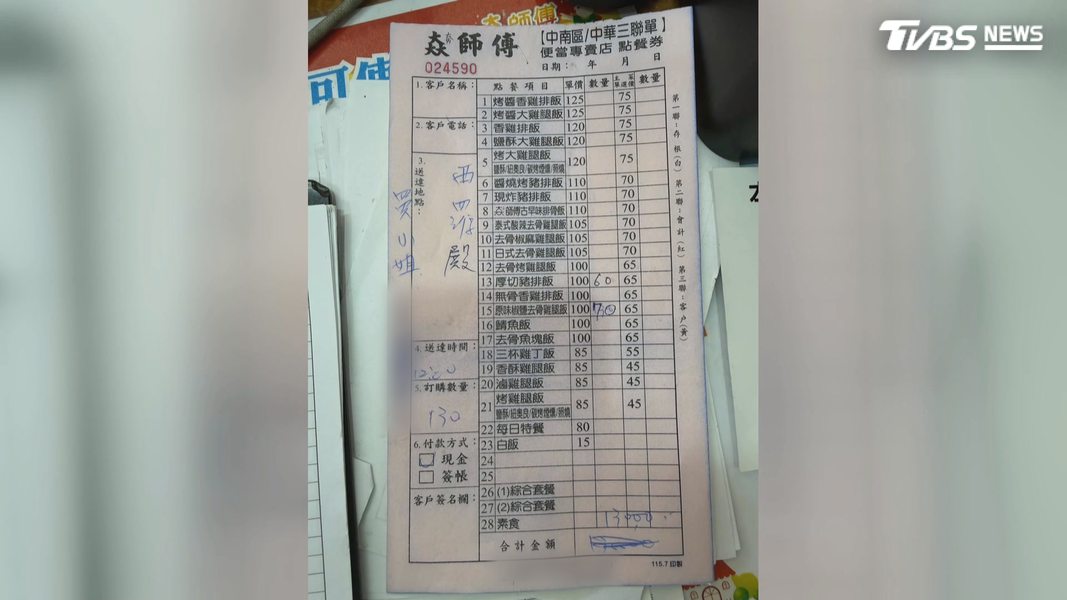 TVBS NEWS
焱師傅
【中南區/中華三聯單】
便當專賣店 點餐券
024590
日期: 年 月 日
1.客戶名稱:
2.客戶電話:
3.送達地點:
西四淮殿
買小姐
4.送達時間:
1200
5.訂購數量:
130
6.付款方式:
現金
簽帳
客戶簽名欄:
點餐項目 單價 數量 數量
1 烤醬香雞排飯 125 75
2 烤醬大雞腿飯 125 75
3 香雞排飯 120 75
4 鹽酥大雞腿飯 120 75
5 烤大雞腿飯 120 75
6 醬燒烤豬排飯 110 70
7 現炸豬排飯 110 70
8 焱師傅古早味排骨飯 110 70
9 泰式酸辣去骨雞腿飯 105 70
10 去骨椒麻雞腿飯 105 70
11 日式去骨雞腿飯 105 70
12 去骨烤雞腿飯 100 65
13 厚切豬排飯 100 60 65
14 無骨香雞排飯 100 65
15 原味椒鹽去骨雞腿飯 100 70 65
16 鯖魚飯 100 65
17 去骨魚塊飯 100 65
18 三杯雞丁飯 85 55
19 香酥雞腿飯 85 45
20 滷雞腿飯 85 45
21 烤雞腿飯 85 45
22 每日特餐 80
23 白飯 15
24
25
26 (1)綜合套餐
27 (2)綜合套餐
28 素食 13000
合計金額
第一聯:存根(白) 第二聯:會計(紅) 第三聯:客戶(黃)
115.7印製